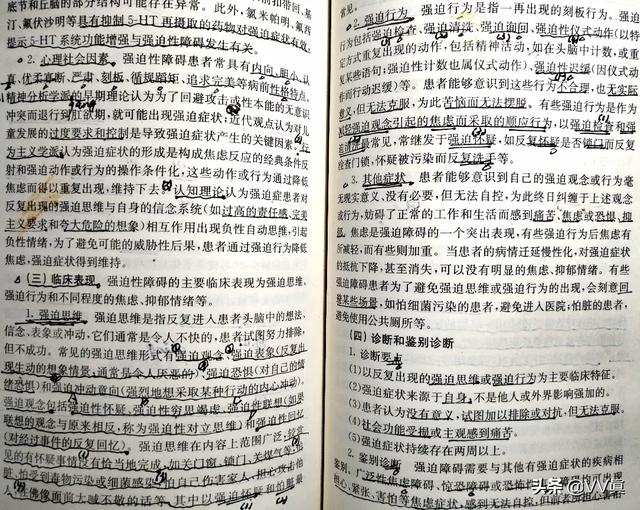 底节和丘脑的部分结构可能存在异常。此外，氯米帕明、氟西
汀、氟伏沙明等具有抑制5-HT再摄取的药物对强迫症状有效，
提示5-HT系统功能增强与强迫性障碍发生有关。
2. 心理社会因素。强迫性障碍患者常具有内向、胆小、认
真、优柔寡断、严肃、刻板、循规蹈矩、追求完美等病前性格特点。
精神分析学派的早期理论认为为了回避攻击或性本能的无意识
冲突而退行到肛欲期，就可能出现强迫症状；近代观点认为对儿
童发展的过度要求和控制是导致强迫症状产生的关键因素。行
为主义学派认为强迫症状的形成是构成焦虑反应的经典条件反
射和强迫动作或行为的操作条件化，这些动作或行为通过降低
焦虑而得以重复出现，维持下去。认知理论认为强迫症患者对
反复出现的强迫思维与自身的信念系统（如过高的责任感、完美
主义要求和夸大危险的想象）相互作用出现负性自动思维，引起
负性情绪，为了避免可能的威胁性后果，患者通过强迫行为降低
焦虑，强迫症状得到维持。
（三）临床表现。强迫性障碍的主要临床表现为强迫思维、
强迫行为和不同程度的焦虑、抑郁情绪等。
1. 强迫思维 强迫思维是指反复进入患者头脑中的想法、
信念、表象或冲动，它们通常是令人不快的，患者试图努力排除，
但不成功。常见的强迫思维形式有强迫观念、强迫表象（反复出
现生动的想象情景，通常是令人厌恶的）、强迫恐惧（对自己的情
绪恐惧）和强迫冲动意向（强烈地想采取某种行动的内心冲动）。
强迫观念包括强迫性怀疑、强迫性穷思竭虑、强迫性联想（如果
联想的观念与原来相反，称为强迫性对立思维）和强迫性回忆
（对经过事件的反复回忆）。强迫思维在内容上范围广泛，经常
见的有怀疑事情没有恰当地完成，如关门窗、锁门、关煤气等，
怕受到毒物污染或细菌感染，怕自己伤害家人，担心攻击他
人，在佛像面前大喊不敬的话等，其中以强迫怀疑和怕脏最
常见。
2. 强迫行为 强迫行为是指一再出现的刻板行为。强迫
行为包括强迫检查、强迫清洗、强迫询问、强迫性仪式动作（以特
定方式重复出现的动作，包括精神活动，如在头脑中计数，或重
复某些语句；强迫性计数也属仪式动作）、强迫性迟缓（因仪式动
作而行动迟缓）等。患者能够意识到这些行为不合理，也无实际
意义，但无法克服，为此苦恼而无法摆脱。有些强迫行为是作为
减轻强迫观念引起的焦虑而采取的顺应行为，以强迫检查和强
迫清洗最常见，常继发于强迫怀疑，如反复怀疑是否锁门而反复
检查门锁，怀疑被污染而反复洗手等。
3. 其他症状 患者能够意识到自己的强迫观念或行为毫
无现实意义、没有必要，但无法自控，为此终日纠缠于上述观念
或行为，妨碍了正常的工作和生活而感到痛苦、焦虑或恐惧、抑
郁。焦虑是强迫障碍的一个突出表现，有些强迫行为后焦虑有
所减轻，而有些则加重。当患者的病情迁延慢性化，对强迫症状
的抵抗下降，甚至消失，可以没有明显的焦虑、抑郁情绪。有些
强迫障碍患者为了避免强迫思维或强迫行为的出现，会刻意回
避某些场景，如怕细菌污染的患者，避免进入医院；怕脏的患者，
避免使用公共厕所等。
（四）诊断和鉴别诊断
1. 诊断要点
(1)以反复出现的强迫思维或强迫行为为主要临床特征。
(2)强迫症状来源于自身，不是他人或外界影响强加的。
(3)患者认为没有意义，试图加以排除或对抗，但无法克服。
(4)社会功能受损或主观感到痛苦。
(5)强迫症状持续存在两周以上。
2. 鉴别诊断 强迫障碍需要与其他有强迫症状的疾病相
鉴别。广泛性焦虑障碍、惊恐障碍或恐怖性
担心、紧张、害怕等焦虑症状，感到无法自控，但前者所担心害
头条 @VV草